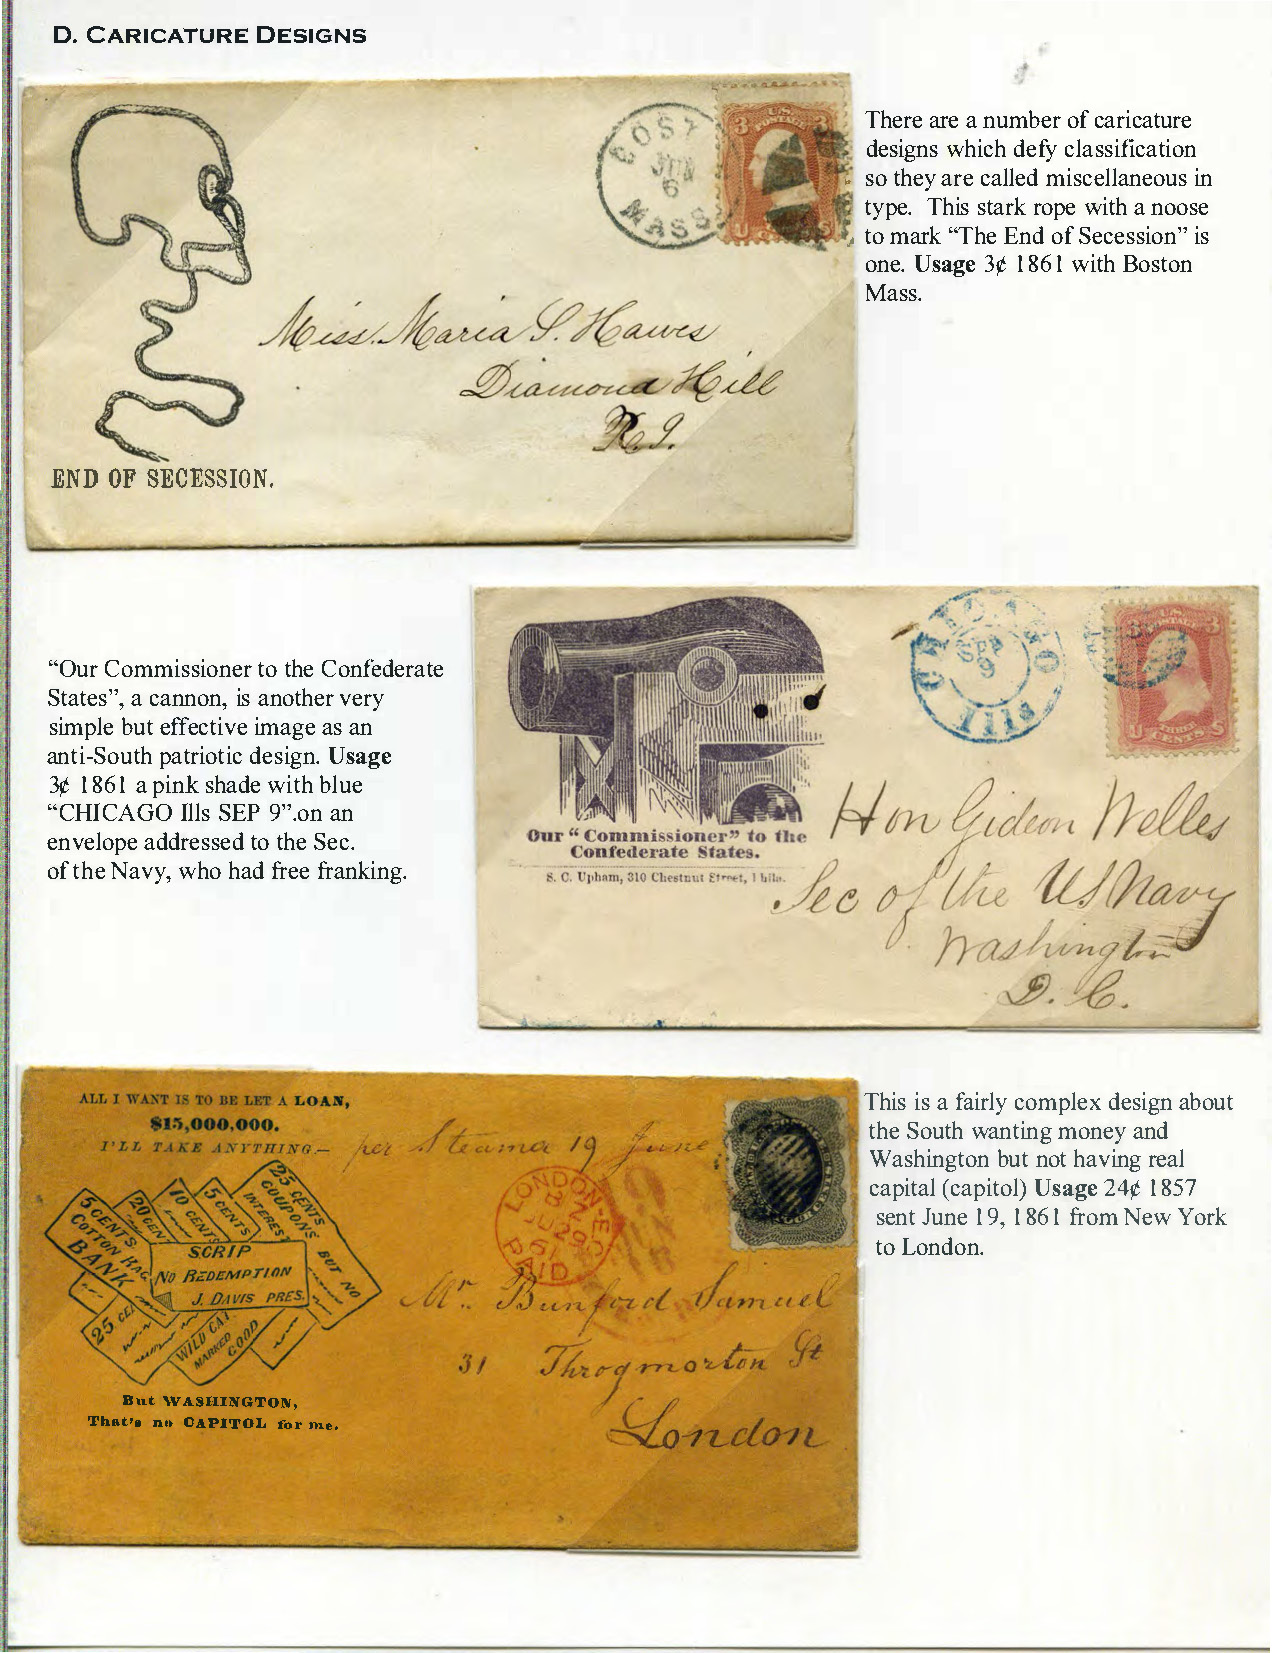 D. CARICATURE DESIGNS
BOST
JUN
6
MASS
3 U.S. POSTAGE 3
U S
There are a number of caricature
designs which defy classification
so they are called miscellaneous in
type. This stark rope with a noose
to mark “The End of Secession” is
one. Usage 3¢ 1861 with Boston
Mass.
Miss. Maria S. Hawes
Diamond Hill
R.I.
END OF SECESSION.
“Our Commissioner to the Confederate
States”, a cannon, is another very
simple but effective image as an
anti-South patriotic design. Usage
3¢ 1861 a pink shade with blue
“CHICAGO Ills SEP 9”.on an
envelope addressed to the Sec.
of the Navy, who had free franking.
CHICAGO
SEP
9
Ills
U.S. POSTAGE 3
U THREE CENTS S
Our “Commissioner” to the
Confederate States.
S. C. Upham, 310 Chestnut Street, Phila.
Hon Gideon Welles
Sec of the US Navy
Washington
D. C.
ALL I WANT IS TO BE LET A LOAN,
$15,000,000.
I'LL TAKE ANYTHING.—
per Steamer 19 June
25 CENTS
COUPONS
INTEREST
BUT NO
5 CENTS
10 CENTS
20 CENT
5 CENTS.
COTTON RAG
BANK
SCRIP
NO REDEMPTION
J. DAVIS PRES.
25 CE
WILD CAT
MARKED
GOOD
But WASHINGTON,
That's no CAPITOL for me.
LONDON-E.C
JU 29
61
PAID
Mr. Bunford Samuel
31 Throgmorton St
London
This is a fairly complex design about
the South wanting money and
Washington but not having real
capital (capitol) Usage 24¢ 1857
sent June 19, 1861 from New York
to London.